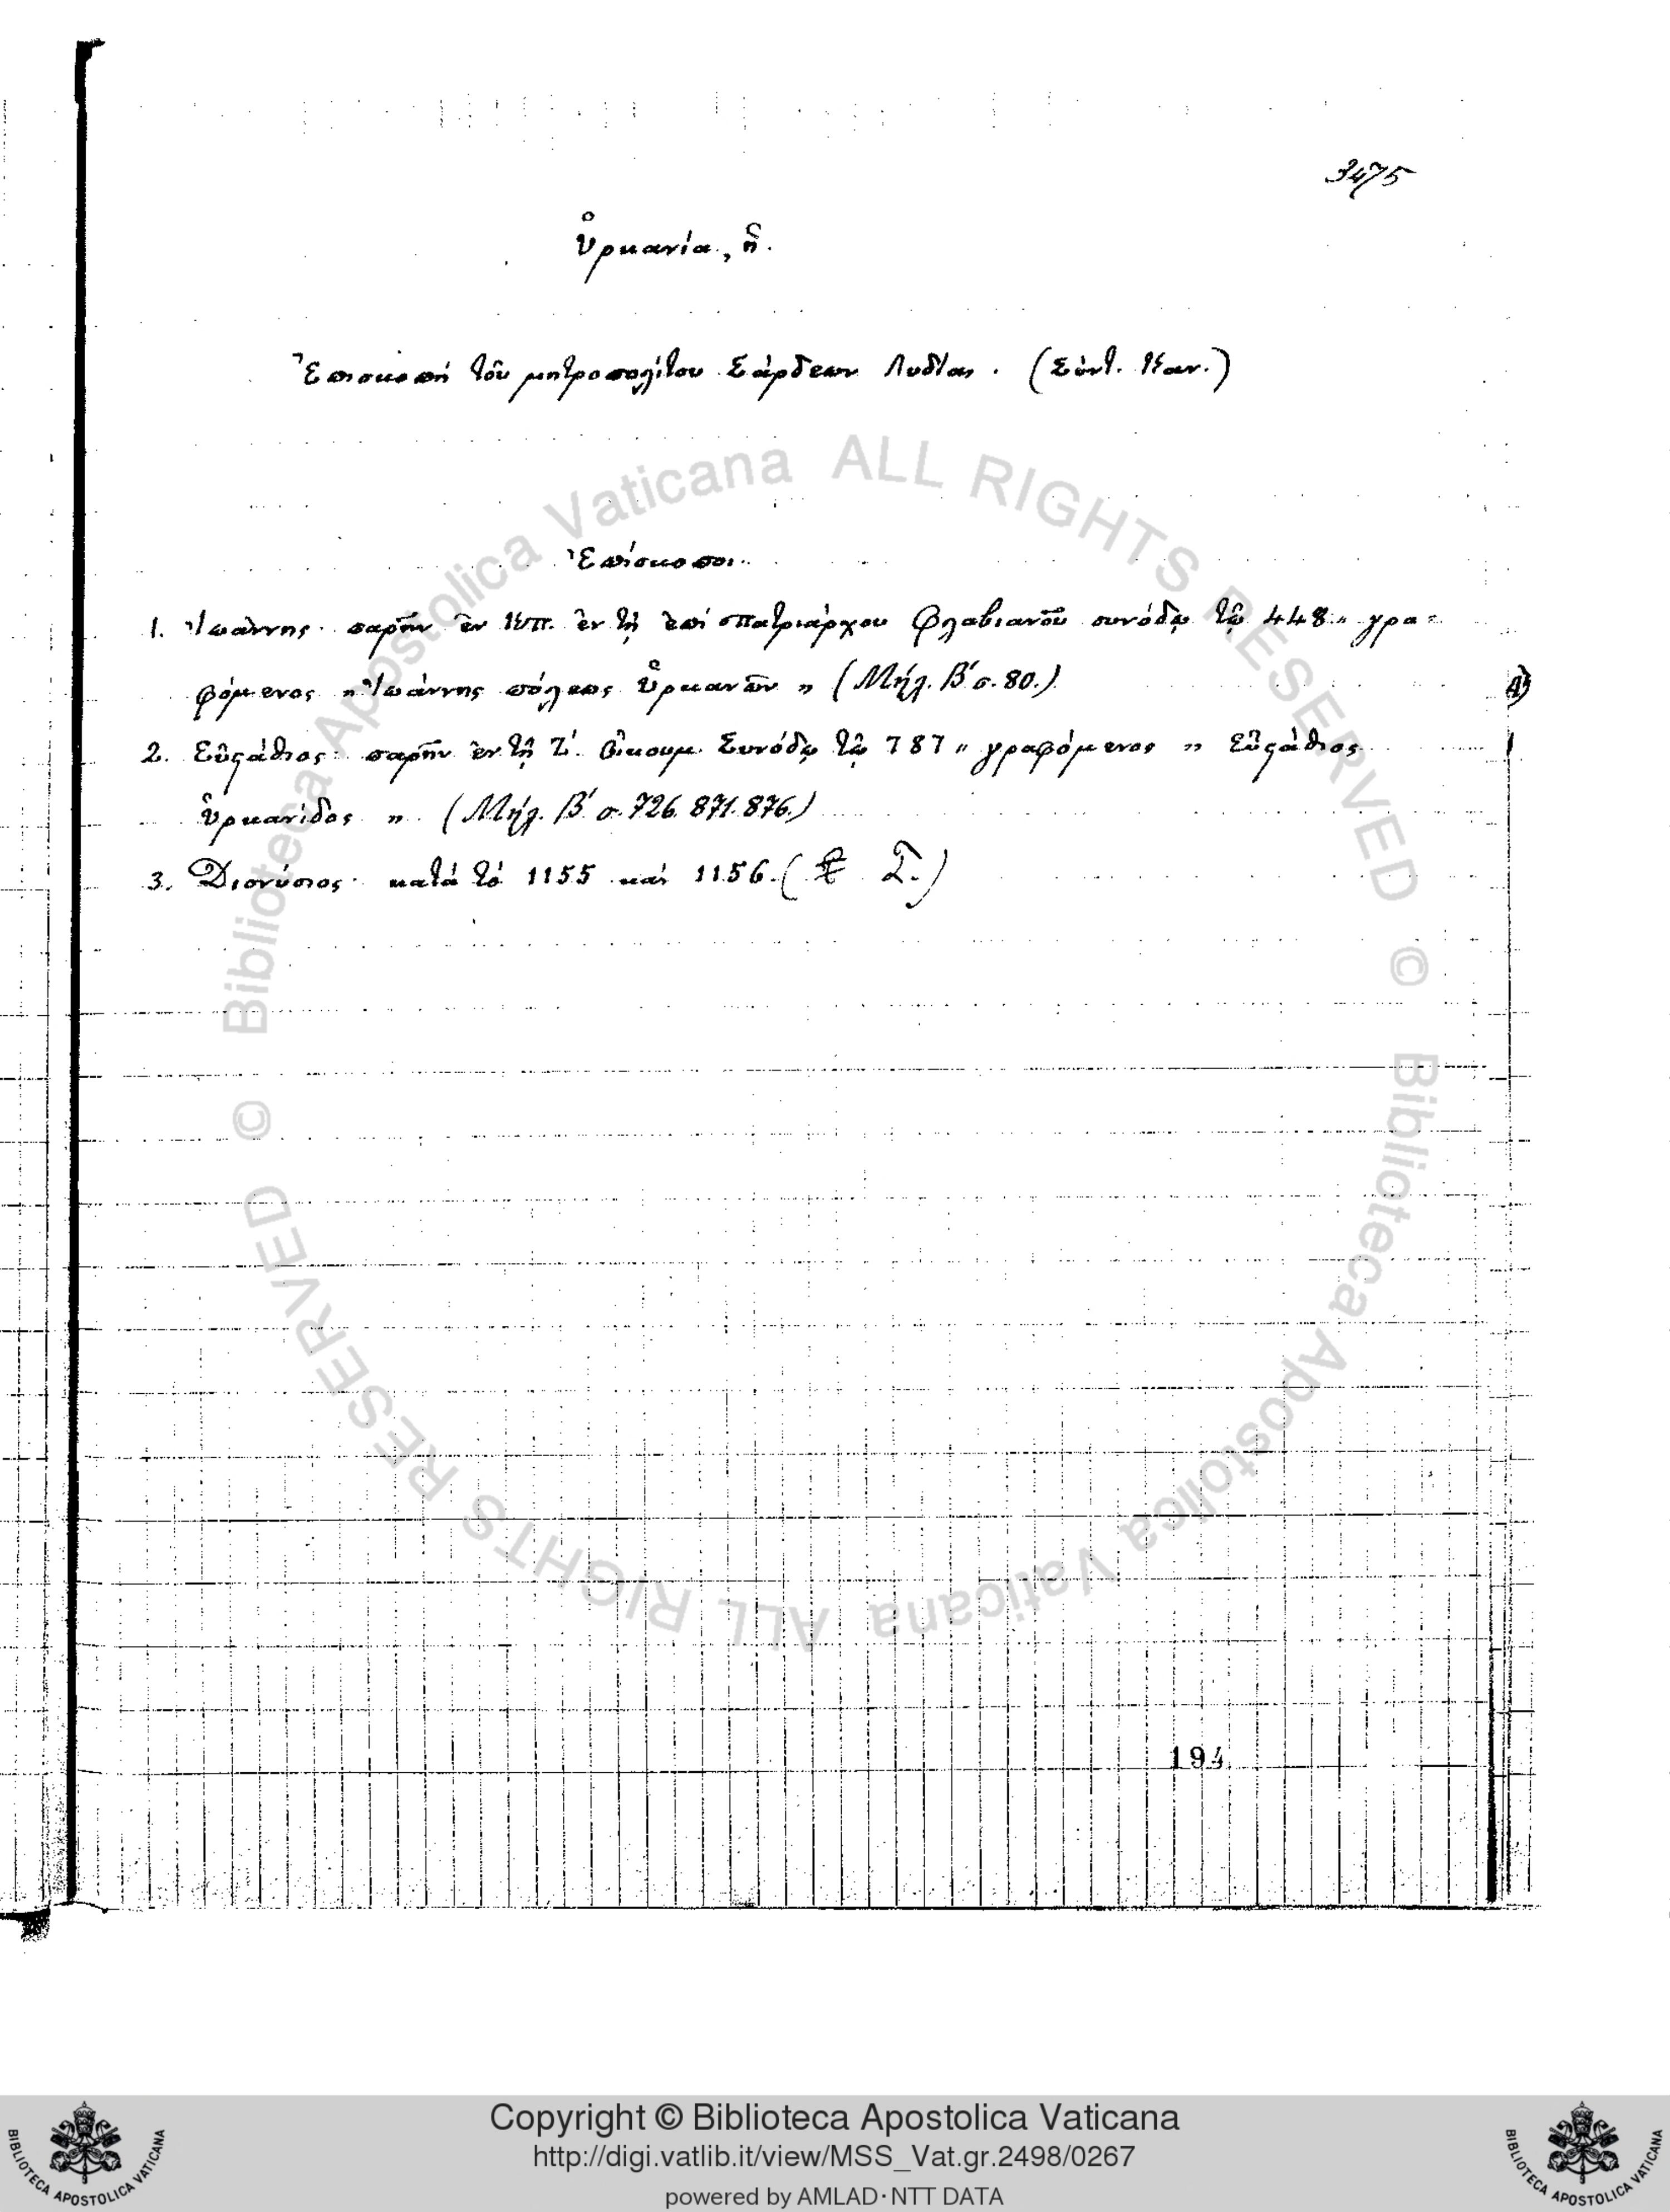 3475
Ὑρκανία, ἡ.
Ἐπισκοπή τοῦ μητροπολίτου Σάρδεων Λυδίας. (Σύντ. Καν.)
Ἐπίσκοποι.
1. Ἰωάννης· παρῆν ἐν Κπ. ἐν τῇ ἐπί πατριάρχου Φλαβιανοῦ συνόδῳ τῷ 448 „ γρα=
φόμενος „ Ἰωάννης πόλεως Ὑρκανῶν „ (Μήλ. Β΄ σ. 80.)
2. Εὐστάθιος· παρῆν ἐν τῇ Ζ΄. Οἰκουμ. Συνόδῳ τῷ 787 „ γραφόμενος „ Εὐστάθιος
Ὑρκανίδος „ (Μήλ. Β΄ σ. 726. 871. 876.)
3. Διονύσιος· κατά τό 1155 καί 1156. (
194
© Biblioteca Apostolica Vaticana ALL RIGHTS RESERVED
© Biblioteca Apostolica Vaticana ALL RIGHTS RESERVED
Copyright © Biblioteca Apostolica Vaticana
http://digi.vatlib.it/view/MSS_Vat.gr.2498/0267
powered by AMLAD·NTT DATA
BIBLIOTECA APOSTOLICA VATICANA
BIBLIOTECA APOSTOLICA VATICANA